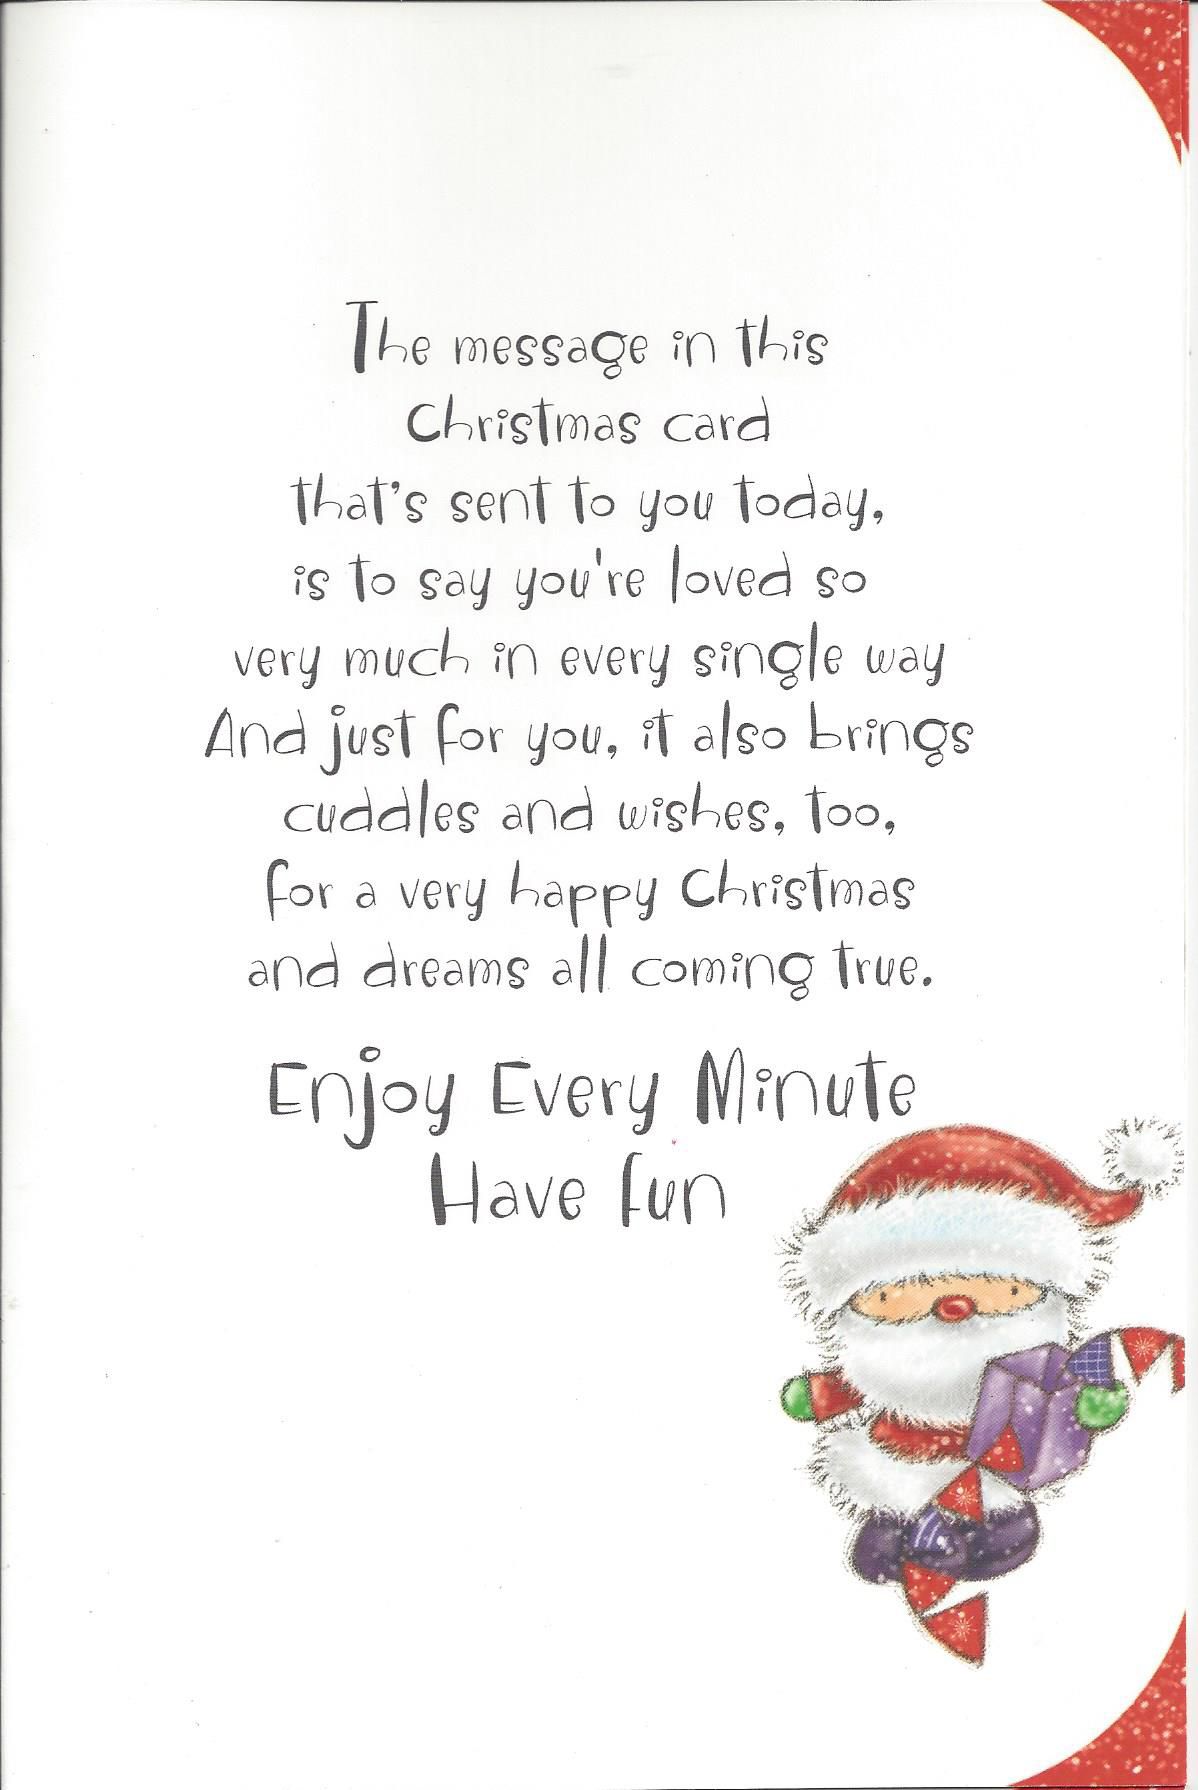 The message in this
Christmas card
that's sent to you today,
is to say you're loved so
very much in every single way
And just for you, it also brings
cuddles and wishes, too,
for a very happy Christmas
and dreams all coming true.
Enjoy Every Minute
Have fun